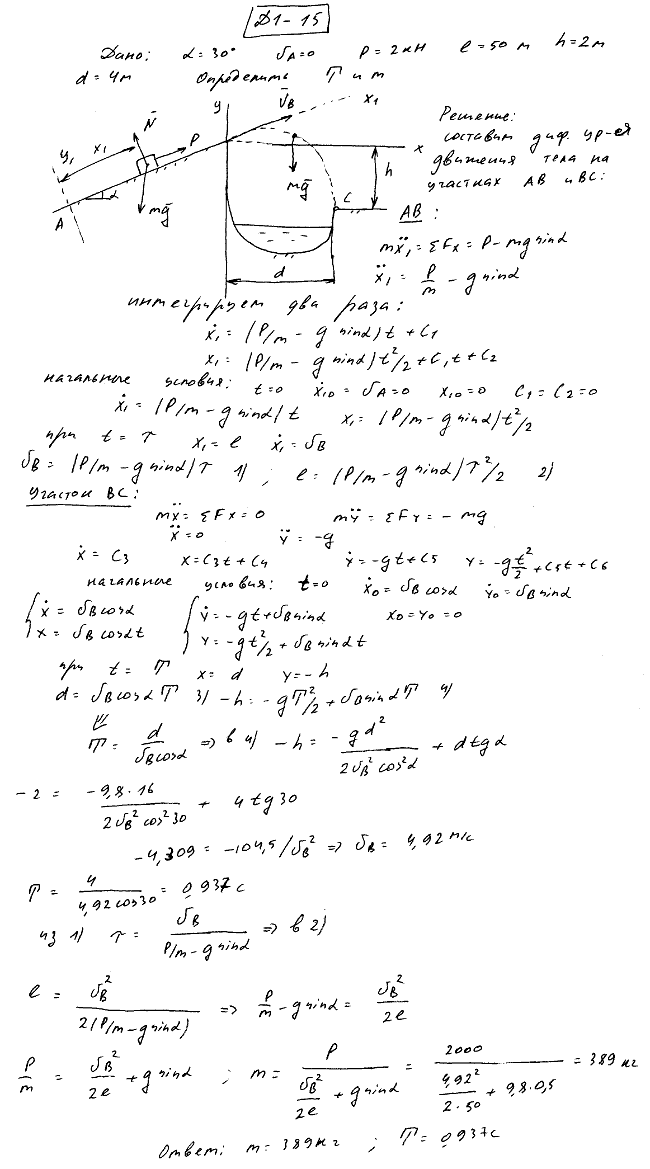 Д1-15
Дано: α=30° υA=0 P=2кН ℓ=50м h=2м
d=4м Определить T и m
y ῡB x₁
N̄ P y₁ x₁ x h C
A α mḡ mḡ d
Решение:
составим диф. ур-ея
движения тела на
участках AB и BC:
AB:
mẍ₁ = ΣFx = P - mg sinα
ẍ₁ = P/m - g sinα
интегрируем два раза:
ẋ₁ = (P/m - g sinα)t + C₁
x₁ = (P/m - g sinα)t²/2 + C₁t + C₂
начальные условия: t=0 ẋ₁₀ = υA=0 x₁₀=0 C₁=C₂=0
ẋ₁ = (P/m - g sinα)t x₁ = (P/m - g sinα)t²/2
при t=τ x₁=ℓ ẋ₁=υB
υB = (P/m - g sinα)τ 1) ; ℓ = (P/m - g sinα)τ²/2 2)
Участок BC:
mẍ = ΣFx = 0 mÿ = ΣFy = - mg
ẍ=0 ÿ=-g
ẋ = C₃ x=C₃t + C₄ ẏ = -gt + C₅ y = -gt²/2 + C₅t + C₆
начальные условия: t=0 ẋ₀ = υB cosα ẏ₀ = υB sinα
ẋ = υB cosα ẏ = -gt + υB sinα x₀=y₀=0
x = υB cosα t y = -gt²/2 + υB sinα t
при t = T x = d y=-h
d = υB cosα T 3) -h = -gT²/2 + υB sinα T 4)
⇓
T = d/(υB cosα) ⇒ в 4) -h = -gd²/(2υB² cos²α) + d tgα
-2 = -9,8·16/(2υB² cos²30) + 4 tg30
-4,309 = -104,5/υB² ⇒ υB = 4,92 м/с
T = 4/(4,92 cos30) = 0,937 с
из 1) τ = υB/(P/m - g sinα) ⇒ в 2)
ℓ = υB²/(2(P/m - g sinα)) ⇒ P/m - g sinα = υB²/2ℓ
P/m = υB²/2ℓ + g sinα ; m = P/(υB²/2ℓ + g sinα) = 2000/(4,92²/(2·50) + 9,8·0,5) = 389 кг
Ответ: m = 389кг ; T = 0,937с